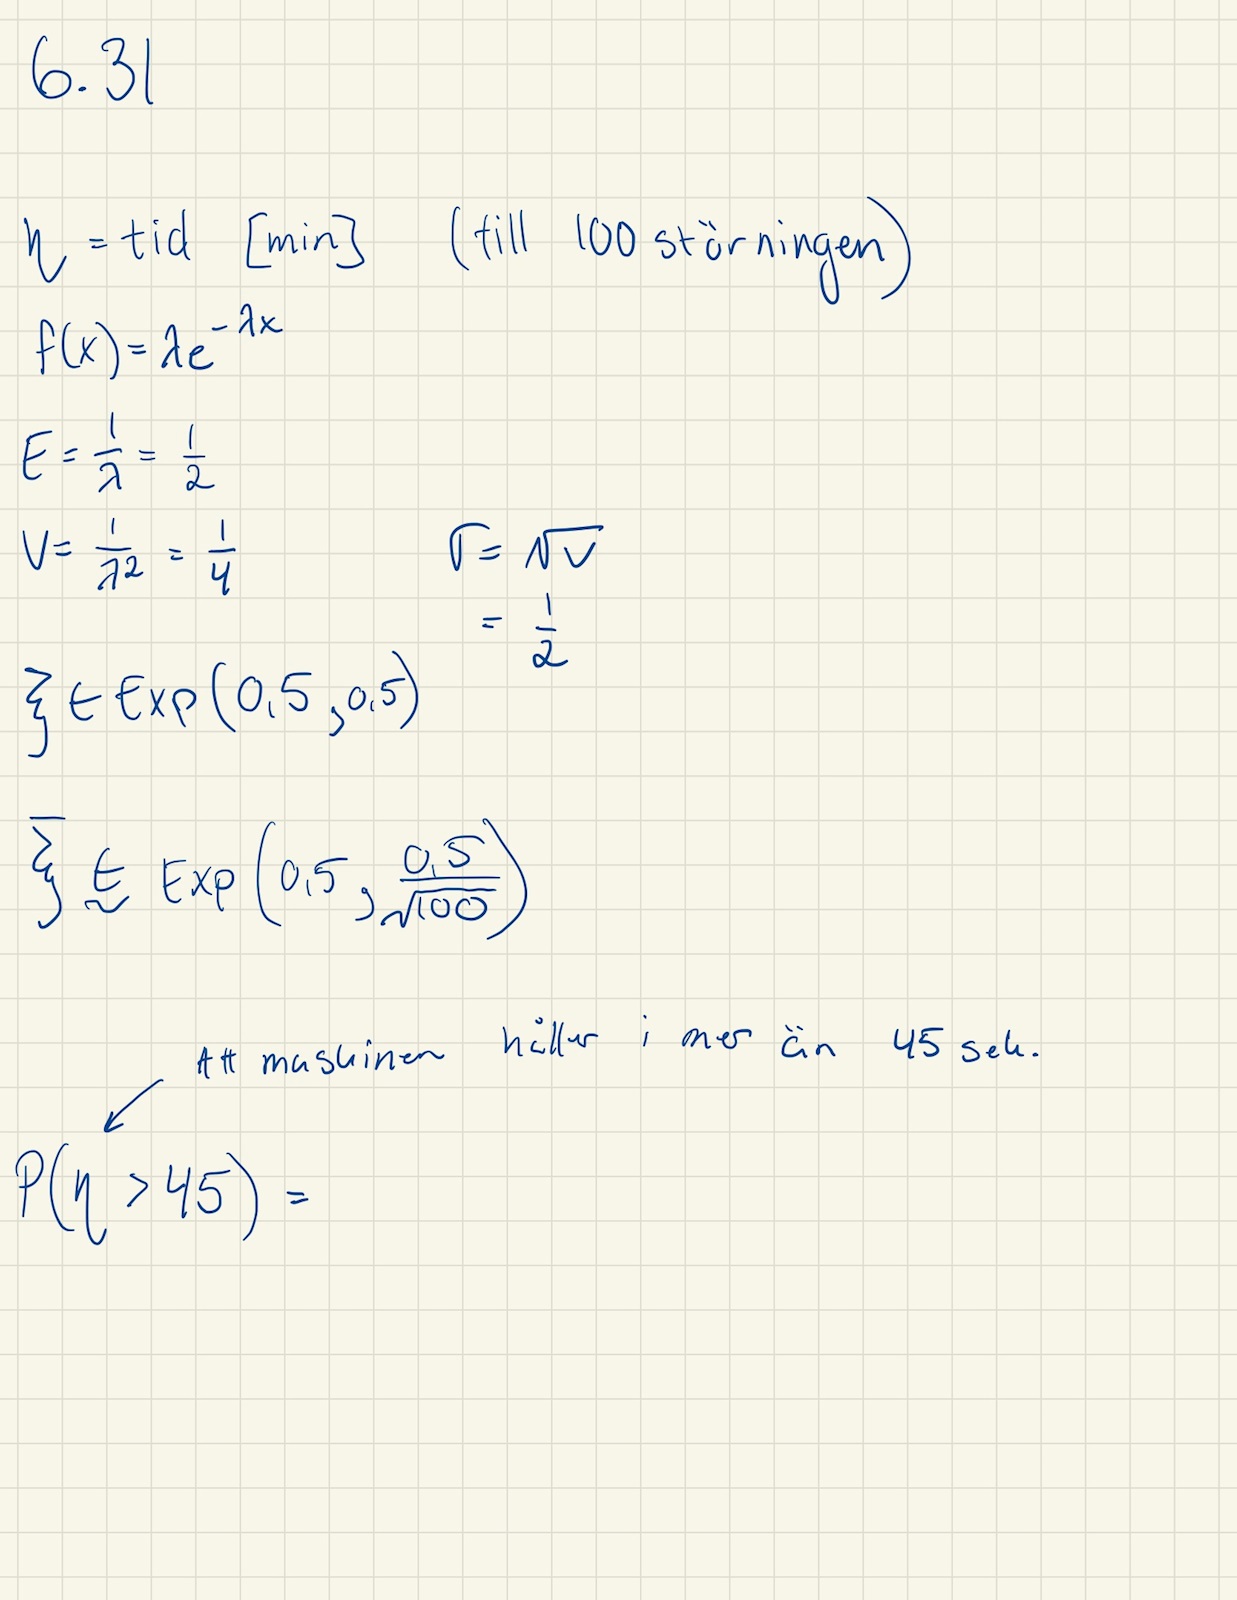 6.31
η = tid [min] (till 100 störningen)
f(x) = λe^{-λx}
E = 1/λ = 1/2
V = 1/λ² = 1/4
σ = √V
= 1/2
ξ ∈ Exp(0,5, 0,5)
ξ̄ ∈~ Exp(0,5, 0,5/√100)
Att maskinen håller i mer än 45 sek.
P(η > 45) =